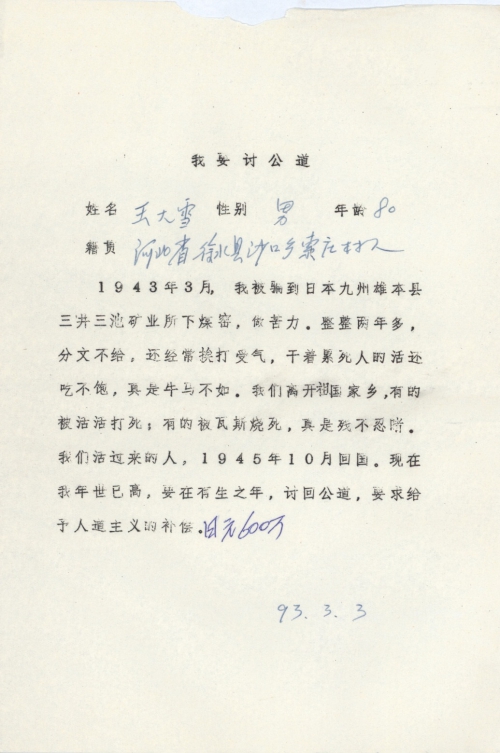 我要讨公道
姓名 王大雪 性别 男 年龄 80
籍贯 河北省徐水县沙口乡索庄村人
1943年3月,我被骗到日本九州雄本县
三井三池矿业所下煤窑,做苦力。整整两年多,
分文不给,还经常挨打受气,干着累死人的活还
吃不饱,真是牛马不如。我们离开祖国家乡,有的
被活活打死;有的被瓦斯烧死,真是残不忍睹。
我们活过来的人,1945年10月回国。现在
我年世已高,要在有生之年,讨回公道,要求给
予人道主义的补偿。日元600万
93.3.3